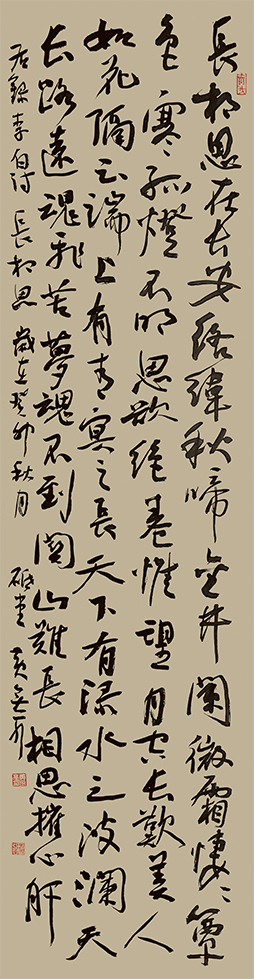 長相思在长安络緯秋啼金井闌微霜悽〻簟
色寒孤燈不明思欲绝卷帷望月空长歎美人
如花隔云端上有青冥之長天下有渌水之波瀾天
长路遠魂飛苦夢魂不到関山難長相思摧心肝
右錄李白诗長相思歲在癸卯秋月